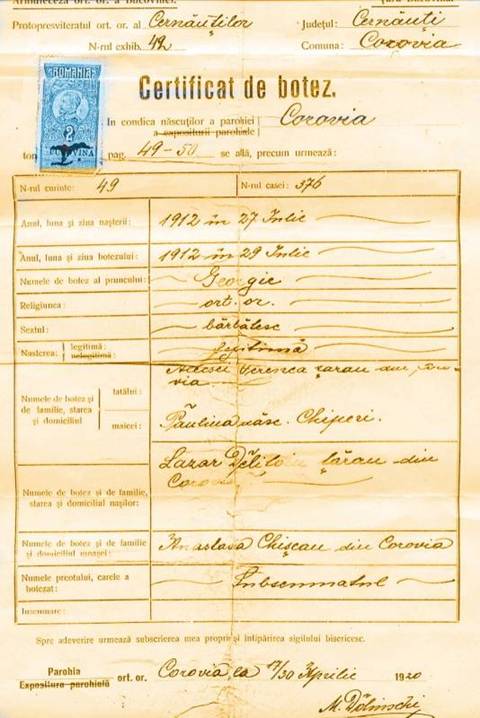 Arhidieceza ort. or. a Bucovinei.
Protopresviteratul ort. or. al Cernăuților
Județul: Cernăuți
N-rul exhib. 42
Comuna: Corovia
ROMANIA
2
BUCOVINA
Certificat de botez.
In condica născuților a parohiei
a expositurii parohiale
Corovia
tom pag. 49-50 se află, precum urmează:
N-rul curinte: 49
N-rul casei: 376
Anul, luna și ziua nașterii: 1912 in 27 Iulie
Anul, luna și ziua botezului: 1912 in 29 Iulie
Numele de botez al pruncului: Georgie
Religiunea: ort. or.
Sextul: bărbătesc
Nasterea: legitimă: nelegitimă: legitimă
Numele de botez și de familie, starea și domiciliul
tatălui: țăran din Corovia
maicei: Păulina născ. Chiperi.
Numele de botez și de familie, starea și domiciliul nașilor:
Lazar țăran din
Corovia
Numele de botez și de familie și domiciliul moașei: Anastasia Chișcan din Corovia
Numele preotului, carele a botezat: Subsemnatul
Insemnare:
Spre adeverire urmează subscrierea mea proprie și intipărirea sigilului bisericesc.
Parohia
Expositura parohială
ort. or. Corovia la 17/30 Aprilie 1920